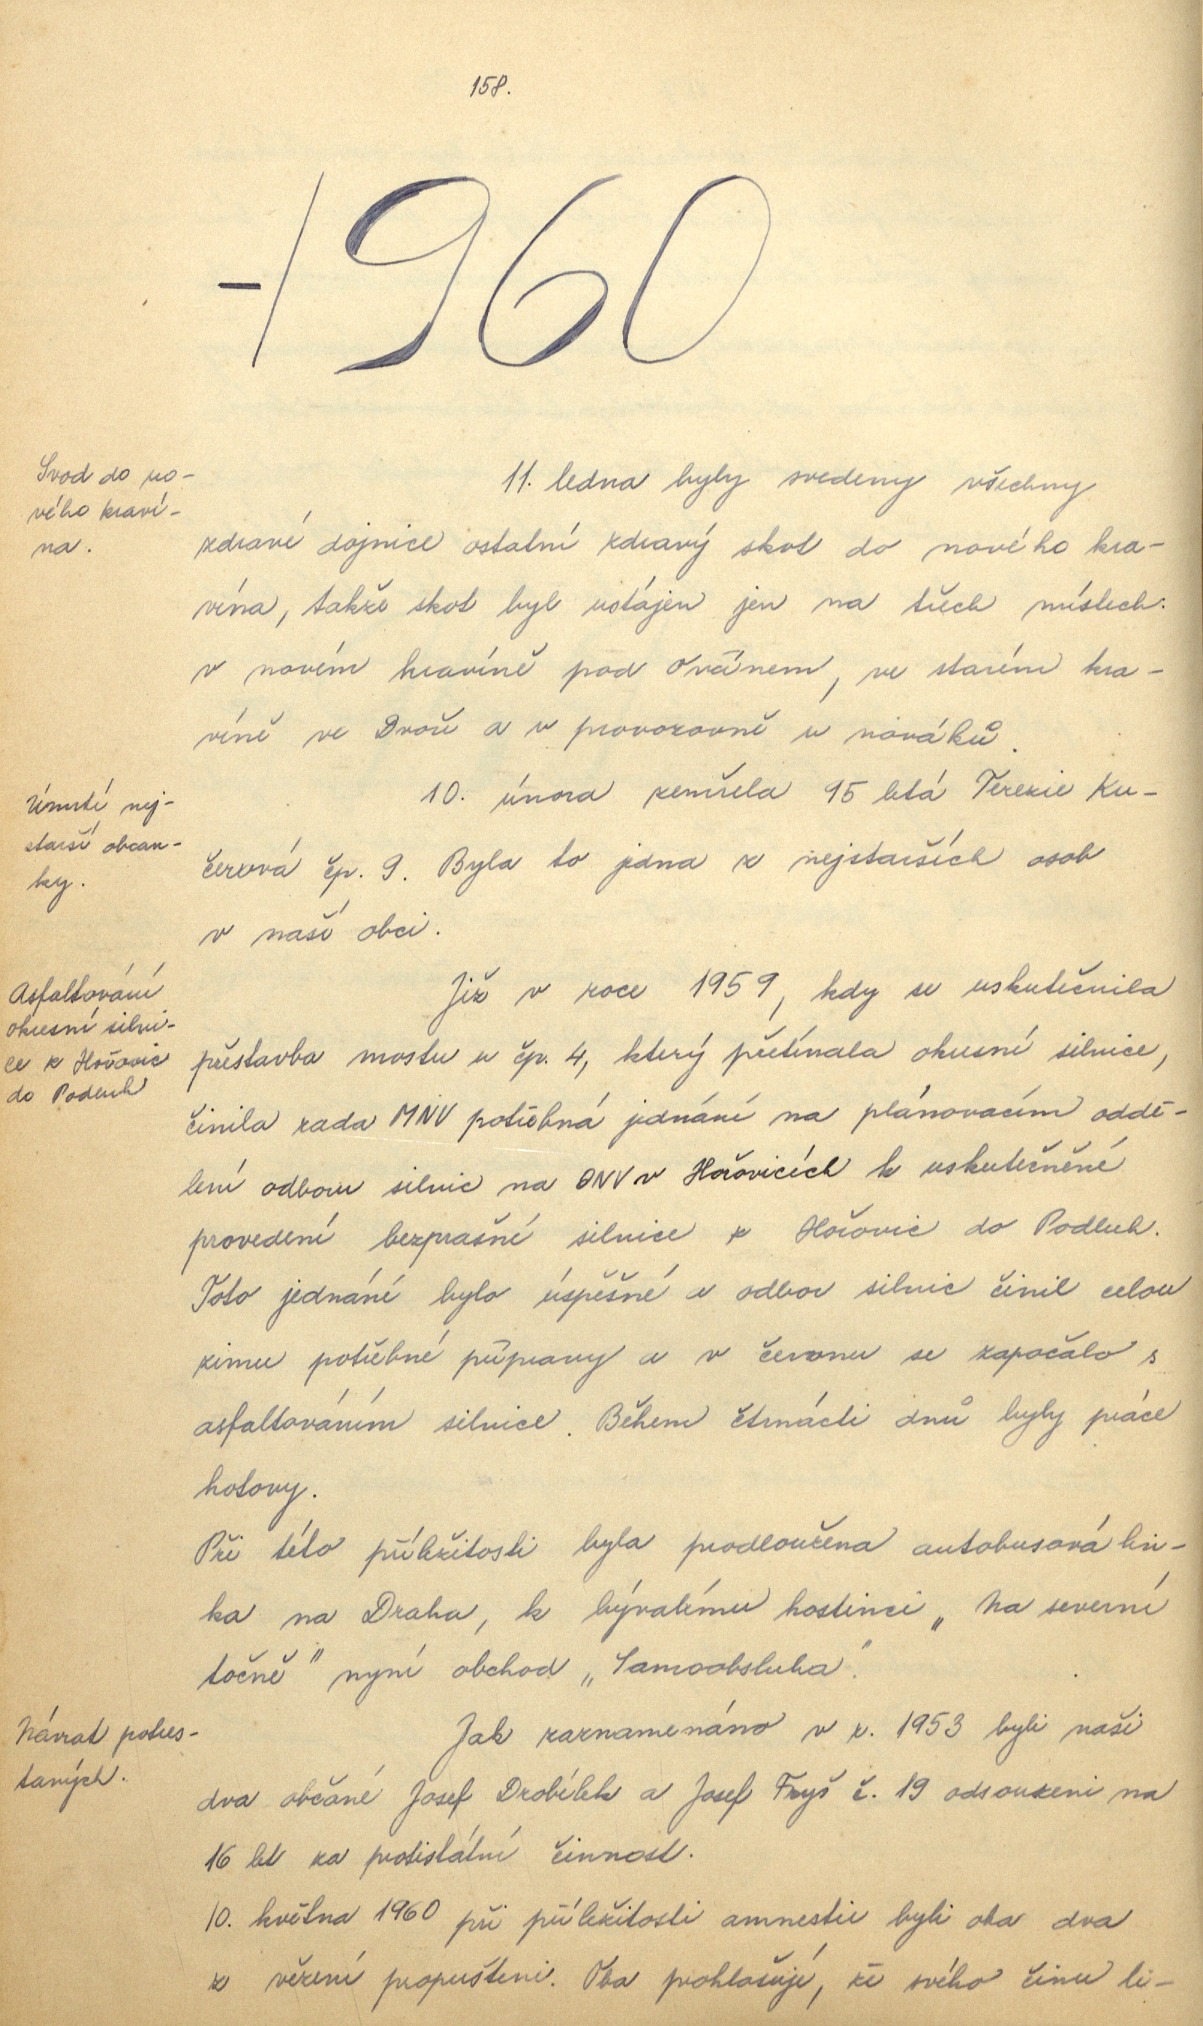 158.
-1960
Svod do no-
vého kraví-
na.
11. ledna byly svedeny všechny
zdravé dojnice ostatní zdravý skot do nového kra-
vína, takže skot byl ustájen jen na třech místech:
v novém kravíně pod Ovčínem, ve starém kra-
víně ve Dvoře a v provozovně u nováků.
Úmrtí nej-
starší občan-
ky.
10. února zemřela 95 letá Terezie Ku-
čerová čp. 9. Byla to jedna z nejstarších osob
v naší obci.
Asfaltování
okresní silni-
ce z Hořovic
do Podluh
Již v roce 1959, kdy se uskutečnila
přestavba mostu u čp. 4, který přetínala okresní silnice,
činila rada MNV potřebná jednání na plánovacím oddě-
lení odboru silnic na ONV v Hořovicích k uskutečněné
provedení bezprašné silnice z Hořovic do Podluh.
Toto jednání bylo úspěšné a odbor silnic činil celou
zimu potřebné přípravy a v červnu se započalo s
asfaltováním silnice. Během čtrnácti dnů byly práce
hotovy.
Při této příležitosti byla prodloužena autobusová lin-
ka na Draha, k bývalému hostinci „Na severní
točně" nyní obchod „Samoobsluha".
Návrat potres-
taných.
Jak zaznamenáno v r. 1953 byli naši
dva občané Josef Drobílek a Josef Fryš č. 19 odsouzeni na
16 let za protistátní činnost.
10. května 1960 při příležitosti amnestie byli oba dva
z vězení propuštěni. Oba prohlašují, že svého činu li-